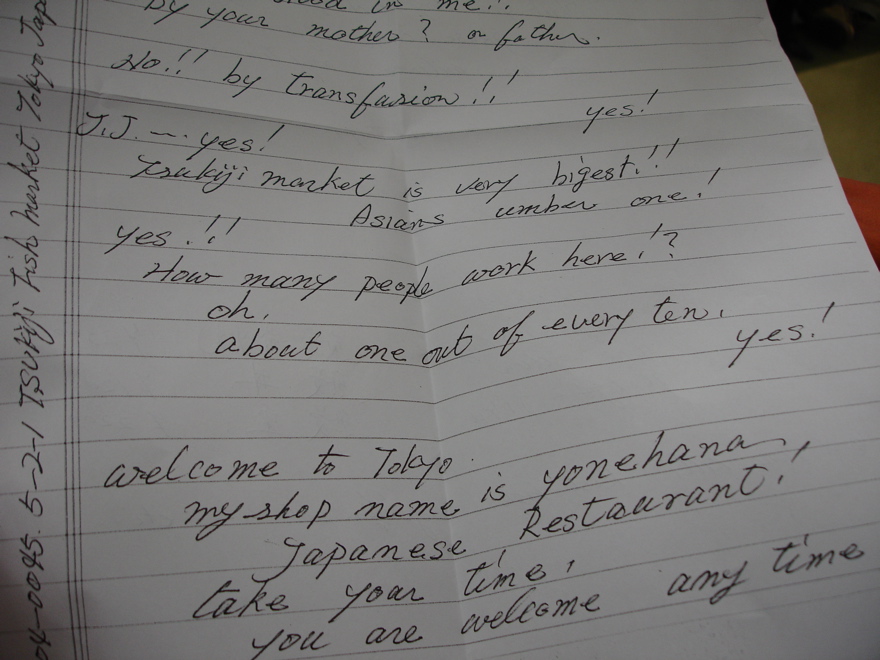 in me!!
by your mother? or father.
No!! by transfasion!!
yes!
J.J. ~~ yes!
Tsukiji market is very bigest!!!
Asians umber one!
yes!!!
How many people work here!?
oh,
about one out of every ten.
yes!
welcome to Tokyo.
my shop name is yonehana,
Japanese Restaurant!
take your time!
you are welcome any time
04-0045. 5-2-1 TSUKIJI Fish market Tokyo Jap